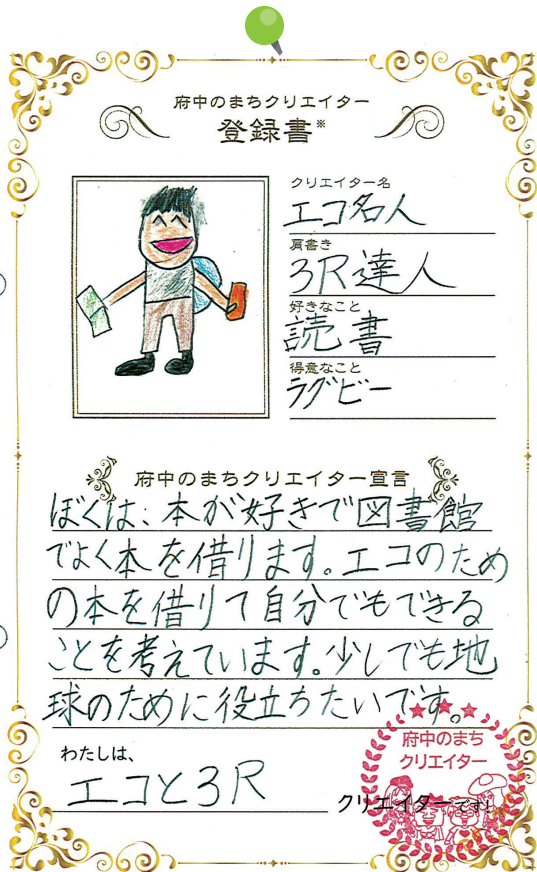 府中のまちクリエイター
登録書※
クリエイター名
エコ名人
肩書き
3R達人
好きなこと
読書
得意なこと
ラグビー
府中のまちクリエイター宣言
ぼくは、本が好きで図書館
でよく本を借ります。エコのため
の本を借りて自分でもできる
ことを考えています。少しでも地
球のために役立ちたいです。
わたしは、
エコと3R
クリエイターです!
府中のまち
クリエイター